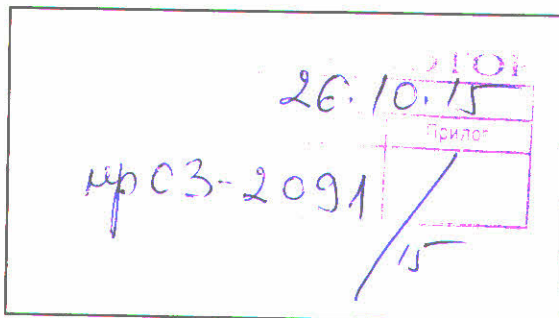 26.10.15
Прилог
мр03-2091/15